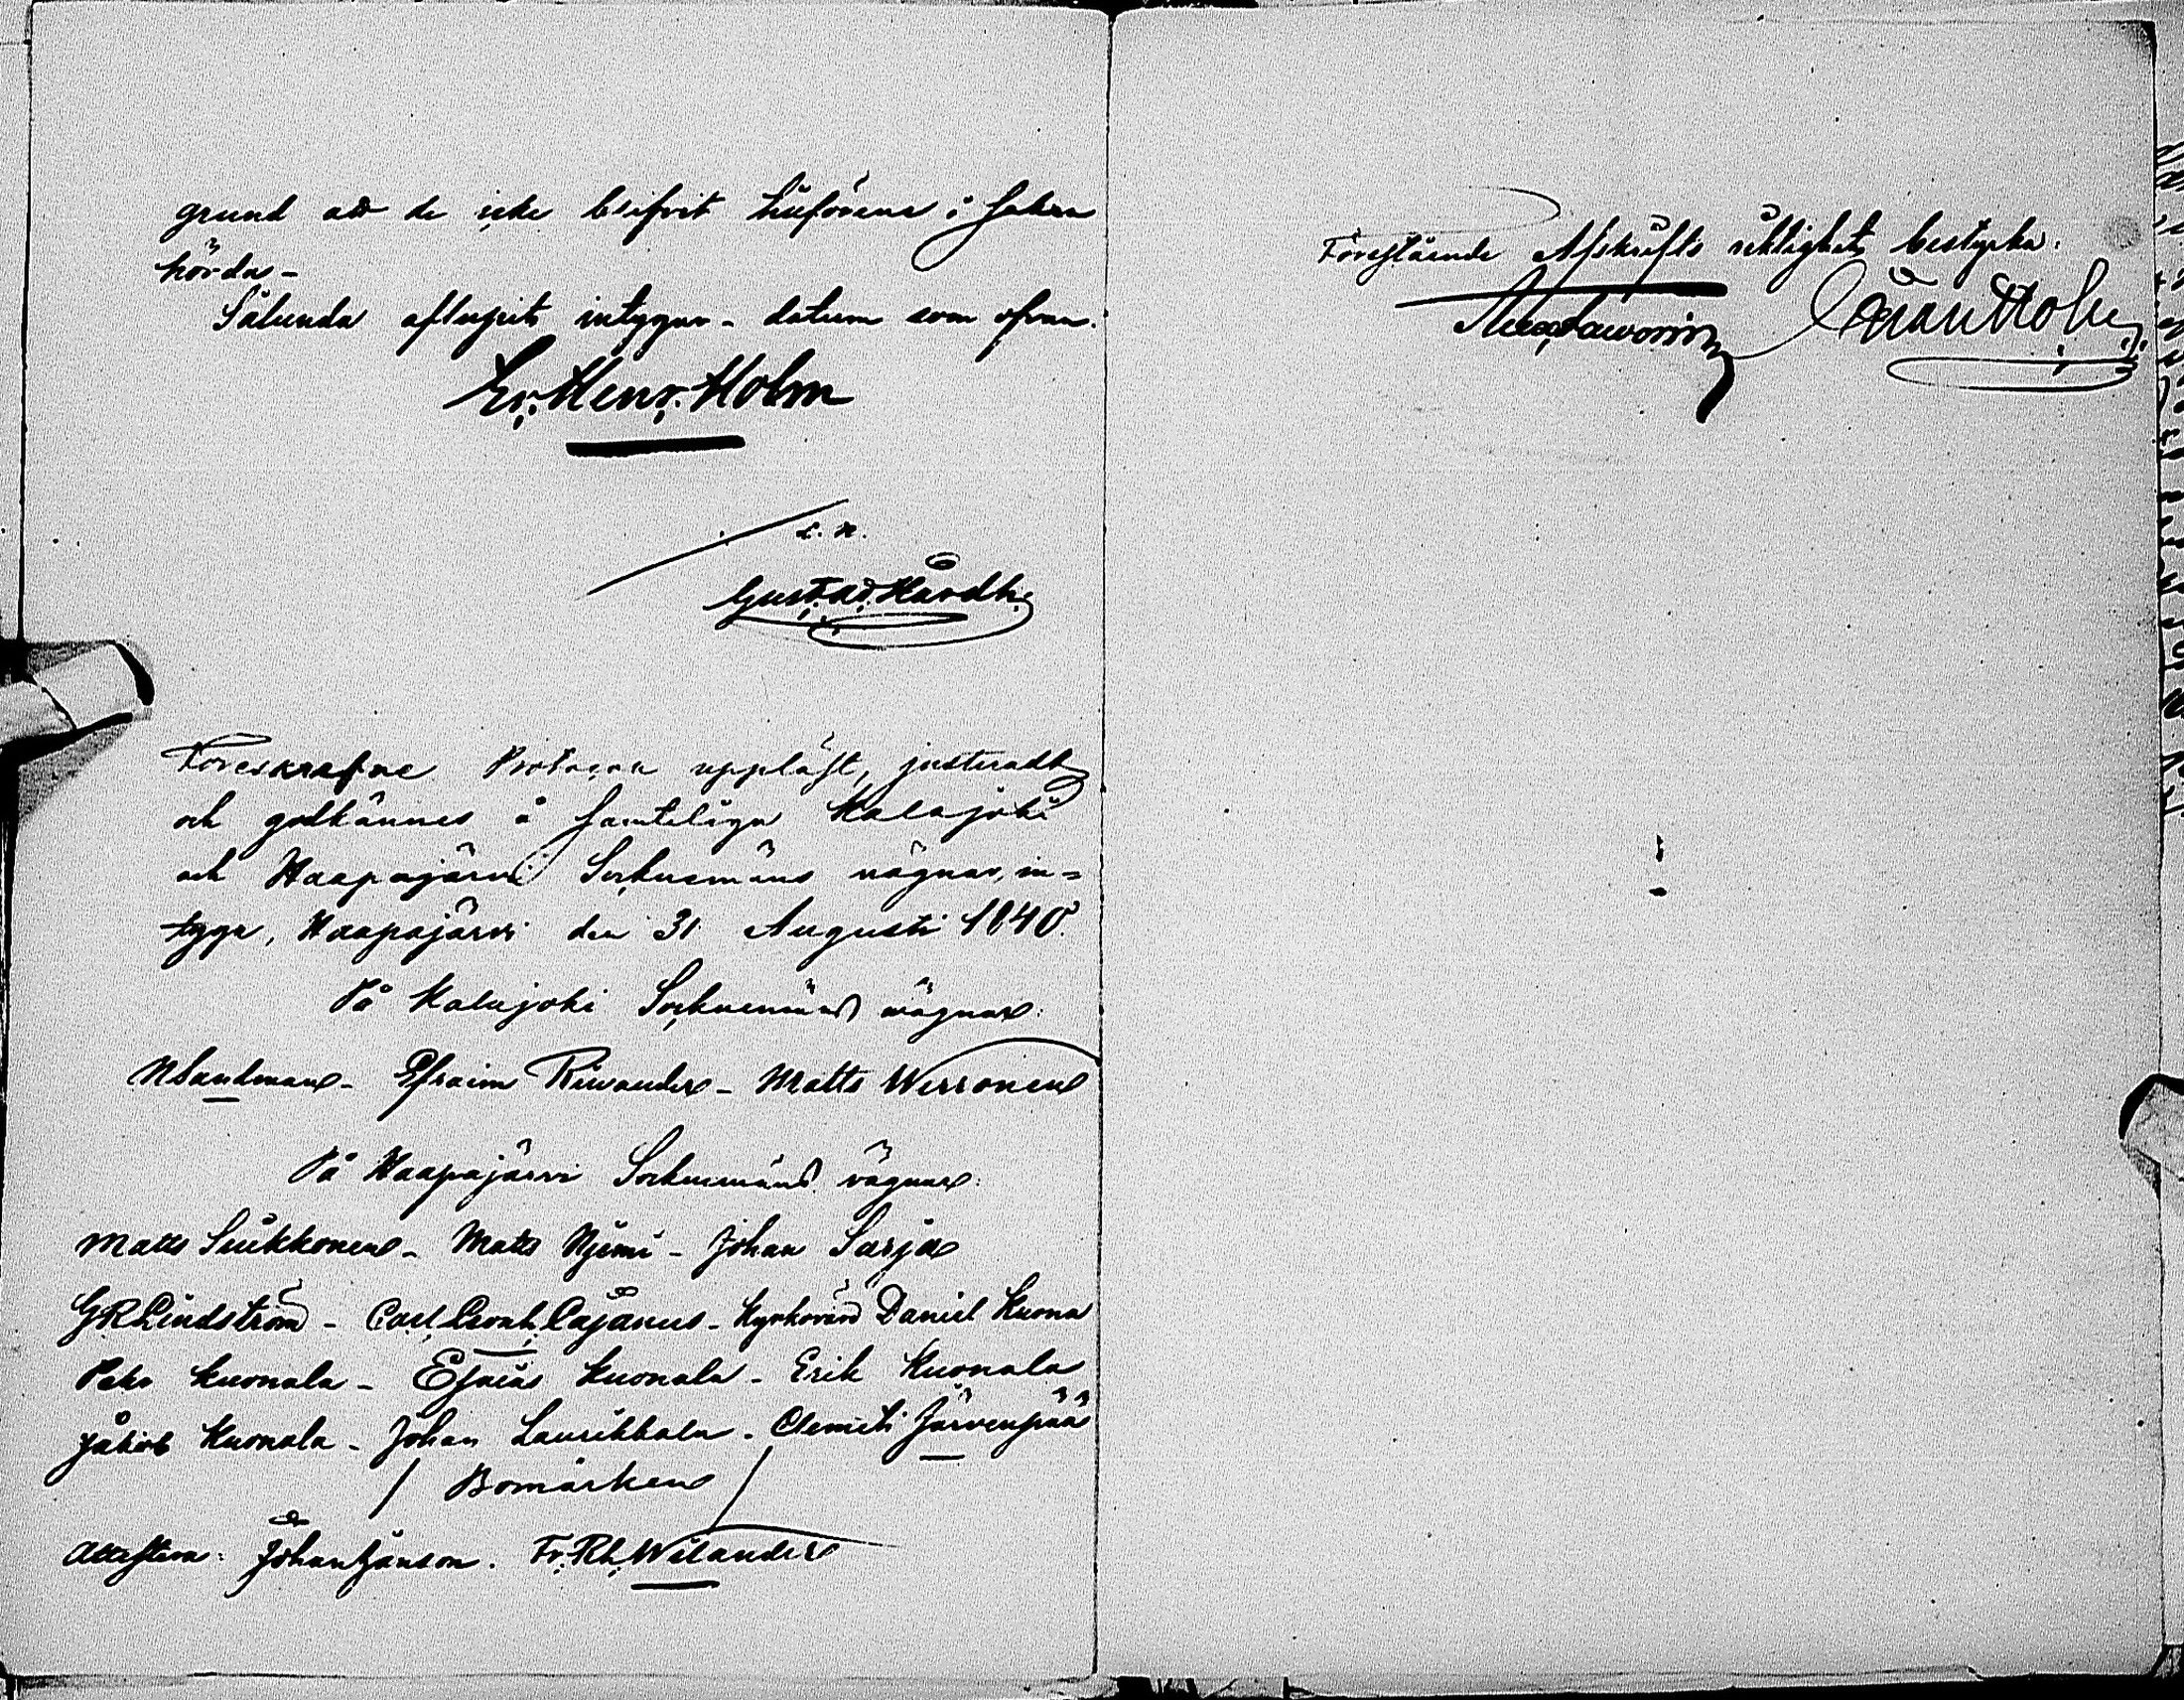 grund att de icke blifvit härförene i saken
hörda -
Sålunda aflupit, intygar - datum som ofvan.
Er. Henr. Holm
L. N.
Gust. Ad. Hårdh
Föreskrefne Protocoll uppläst, justeradt
och godkännes å samtelige Kalajoki
och Haapajärvi Socknemäns vägnar, in=
tyga, Haapajärvi den 31 Augusti 1840.
På Kalajoki Socknemäns vägnar:
N Sandman - Efraim Riwander - Matts Werronen
På Haapajärvi Socknemäns vägnar:
Matts Suikkonen - Matts Njemi - Johan Sarja
G R Lindström - Carl Cajanus - Kyrkovärd Daniel Kuona
Petter Kuonala - Esaias Kuonala - Erik Kuonala
Jakob Kuonala - Johan Laurikkala - Clemeti Järvenpää
/ Bomärken /
Attestera: Johan Janson. Fr. Rh. Wilander
Förestående Afskrifts riktighet bestyrka: